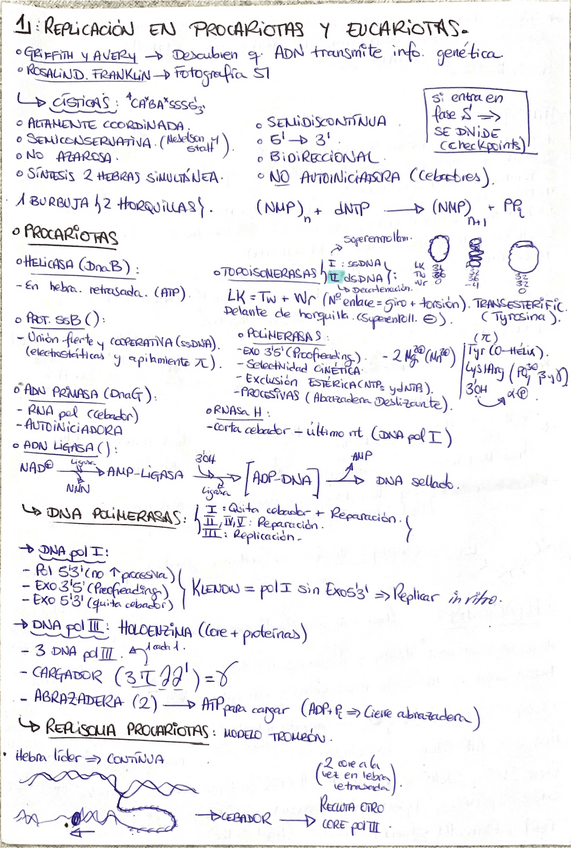 1: REPLICACIÓN EN PROCARIOTAS Y EUCARIOTAS.
o GRIFFITH Y AVERY → Descubren q ADN transmite info. genética
o ROSALIND. FRANKLIN → Fotografía 51
↳ CÍSTICAS: "CA²BA⁴SSSG₃"
o ALTAMENTE COORDINADA.
o SEMICONSERVATIVA. (Meselson y Stall).
o NO AZAROSA.
o SÍNTESIS 2 HEBRAS SIMULTÁNEA.
o SEMIDISCONTÍNUA
o 5' → 3'.
o BIDIRECCIONAL
o NO AUTOINICIADORA (Cebadores).
si entra en
fase S' ⇒
SE DIVIDE
(checkpoints)
1 BURBUJA {2 HORQUILLAS}.
(NMP)n + dNTP → (NMP)n+1 + PPi
o PROCARIOTAS
o HELICASA (DnaB):
- En hebra. retrasada. (ATP).
o TOPOISOMERASAS
Superenrollam.
I : ssDNA
II dsDNA
↳ Decatenación.
LK
Tw
Wr
36
36
0
32
36
-4
32
32
0
LK = Tw + Wr (Nº enlace = giro + torsión). TRANSESTERIFIC.
Delante de horquilla. (superenroll. ⊖). (Tyrosina).
o PROT. SSB ():
- Unión fuerte y COOPERATIVA (ssDNA).
(electrostáticas y apilamiento π).
o POLIMERASAS:
- EXO 3'5' (Proofreading).
- Selectividad CINÉTICA.
- Exclusión ESTÉRICA (NTPs y dNTA).
- PROCESIVAS (Abrazadera Deslizante).
- 2 Mg²⊕ (Mn²⊕)
(π)
Tyr (O-Hélix).
Lys/Arg (PO₄³⊖ β y γ)
3'OH
α℗
o ADN PRIMASA (DnaG):
- RNA pol (cebador)
- AUTOINICIADORA
o RNASA H:
- corta cebador - último nt. (DNA pol I)
o ADN LIGASA ():
NAD⊕ → Ligasa → AMP-LIGASA → 3'OH → [ADP-DNA] → DNA sellado.
NMN
Ligasa
AMP
↳ DNA POLIMERASAS:
I : Quita cebador + Reparación.
II, IV, V : Reparación.
III : Replicación.
→ DNA pol I:
- Pol 5'3' (no ↑ procesiva)
- Exo 3'5' (Proofreading)
- Exo 5'3' (quita cebador)
KLENOW = pol I sin Exo5'3' ⇒ Replicar in vitro.
→ DNA pol III: HOLOENZIMA (core + proteínas)
- 3 DNA pol III.
- CARGADOR (3 π δ δ') = γ
- ABRAZADERA (2) → ATP para cargar (ADP+Pi ⇒ Cierre abrazadera)
↳ REPLISOMA PROCARIOTAS: MODELO TROMBÓN.
Hebra líder ⇒ CONTÍNUA
(2 core a la
vez en hebra
retrasada).
→ CEBADOR → RECLUTA OTRO
CORE pol III.